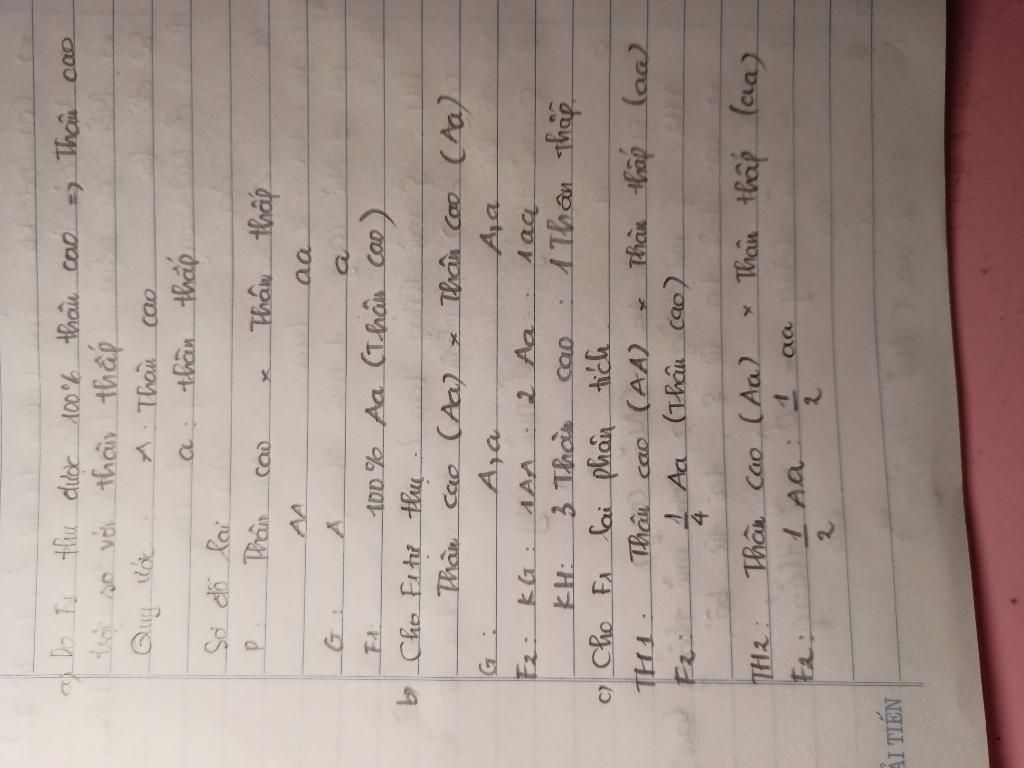 a) Do F1 thu được 100% thân cao => Thân cao
trội so với thân thấp
Quy ước: A: Thân cao
a: thân thấp
Sơ đồ lai
P: Thân cao × Thân thấp
AA aa
G: A a
F1: 100% Aa (Thân cao)
b) Cho F1 tự thụ:
Thân cao (Aa) × Thân cao (Aa)
G: A,a A,a
F2: KG: 1AA : 2 Aa : 1aa
KH: 3 Thân cao : 1 Thân thấp
c) Cho F1 lai phân tích
TH1: Thân cao (AA) × Thân thấp (aa)
F2: 1/4 Aa (Thân cao)
TH2: Thân cao (Aa) × Thân thấp (aa)
F2: 1/2 Aa : 1/2 aa
ẢI TIẾN